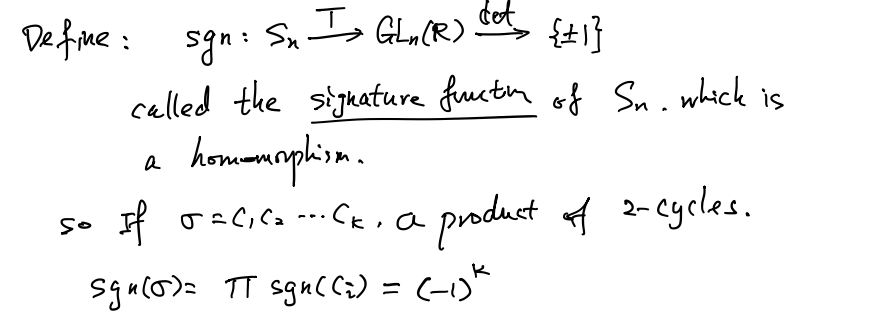 Define : sgn : Sn T→ GLn(R) det→ {±1}
called the signature functn of Sn. which is
a homomorphism.
so If σ = C1 C2 ··· Ck, a product of 2-cycles.
sgn(σ) = Π sgn(Ci) = (-1)^k